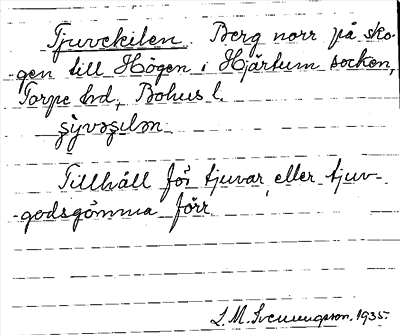 Tjuvekilen. Berg norr på sko-
gen till Högen i Hjärtum socken,
Torpe hd, Bohus l.
şẙvəşılən
Tillhåll för tjuvar eller tjuv-
godsgömma förr.
L. M. Svenungsson. 1935.